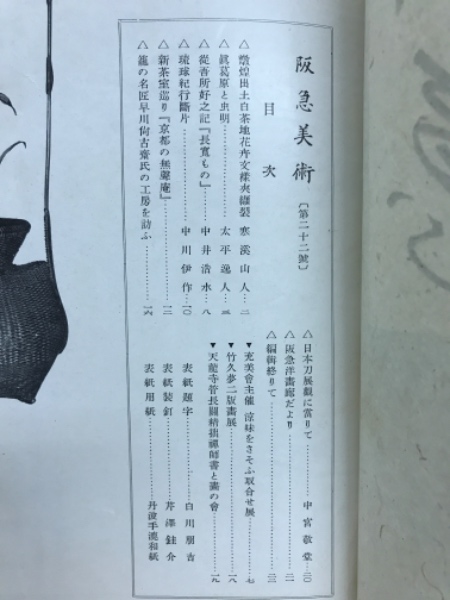 阪急美術〔第二十二號〕
目次
△燉煌出土白茶地花卉文様夾纈裂………寒溪山人…二
△眞葛原と虫明………太平逸人…三
△從吾所好之記『長寬もの』………中井浩水…八
△琉球紀行斷片………中川伊作…一〇
△新茶室巡り『京都の無聲庵』………一二
△籠の名匠早川尙古齋氏の工房を訪ふ………一六
△日本刀展觀に當りて………中宮敬堂…二〇
△阪急洋畫廊だより………二一
△編輯終りて………二三
▼充美會主催 涼味をきそふ取合せ展………七
▼竹久夢二版畫展………一八
▼天龍寺管長關精拙禪師書と畫の會………一九
表紙題字………白川朋吉
表紙裝釘………芹澤銈介
表紙用紙………丹波手漉和紙